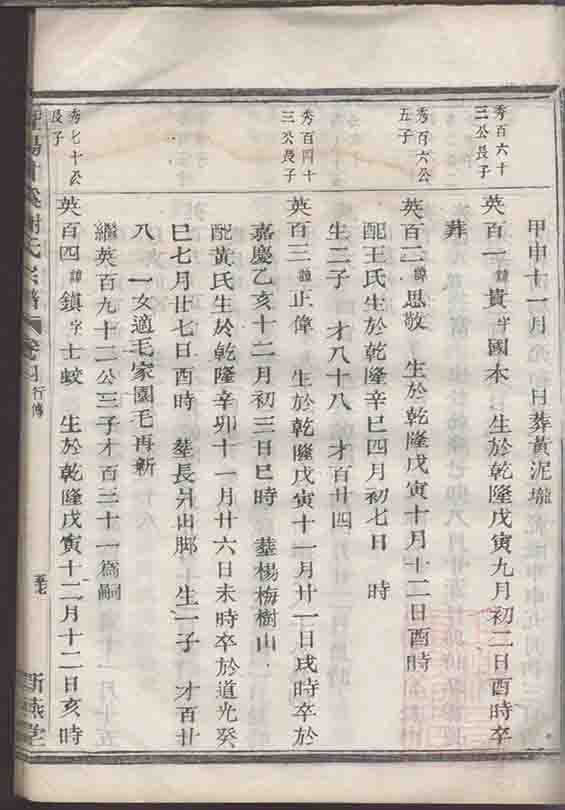 甲申十一月　日葬黃泥壠
秀百六十三公長子
英百一諱貴字國本　生於乾隆戊寅九月初二日酉時卒
葬
秀百六公五子
英百二諱思敬　生於乾隆戊寅十月十二日酉時
配王氏生於乾隆辛巳四月初七日　時
生二子　才八十八　才百廿四
秀百四十三公長子
英百三諱正偉　生於乾隆戊寅十一月廿一日戌時卒於
嘉慶乙亥十二月初三日巳時　塟楊梅樹山
配黃氏生於乾隆辛卯十一月廿六日未時卒於道光癸
巳七月廿七日酉時　塟長爿山脚　生一子　才百廿
八　一女適毛家園毛再新
繼英百九十二公三子才百三十一爲嗣
秀七十公長子
英百四諱鎮字士蛟　生於乾隆戊寅十二月十二日亥時
謝氏宗譜　卷四　行傳